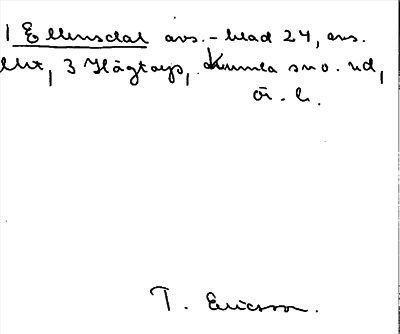 1 Ellinsdal avs.-blad 24, avs.
3 Högtorp, Kumla sn o. hd,
T. Ericsson.